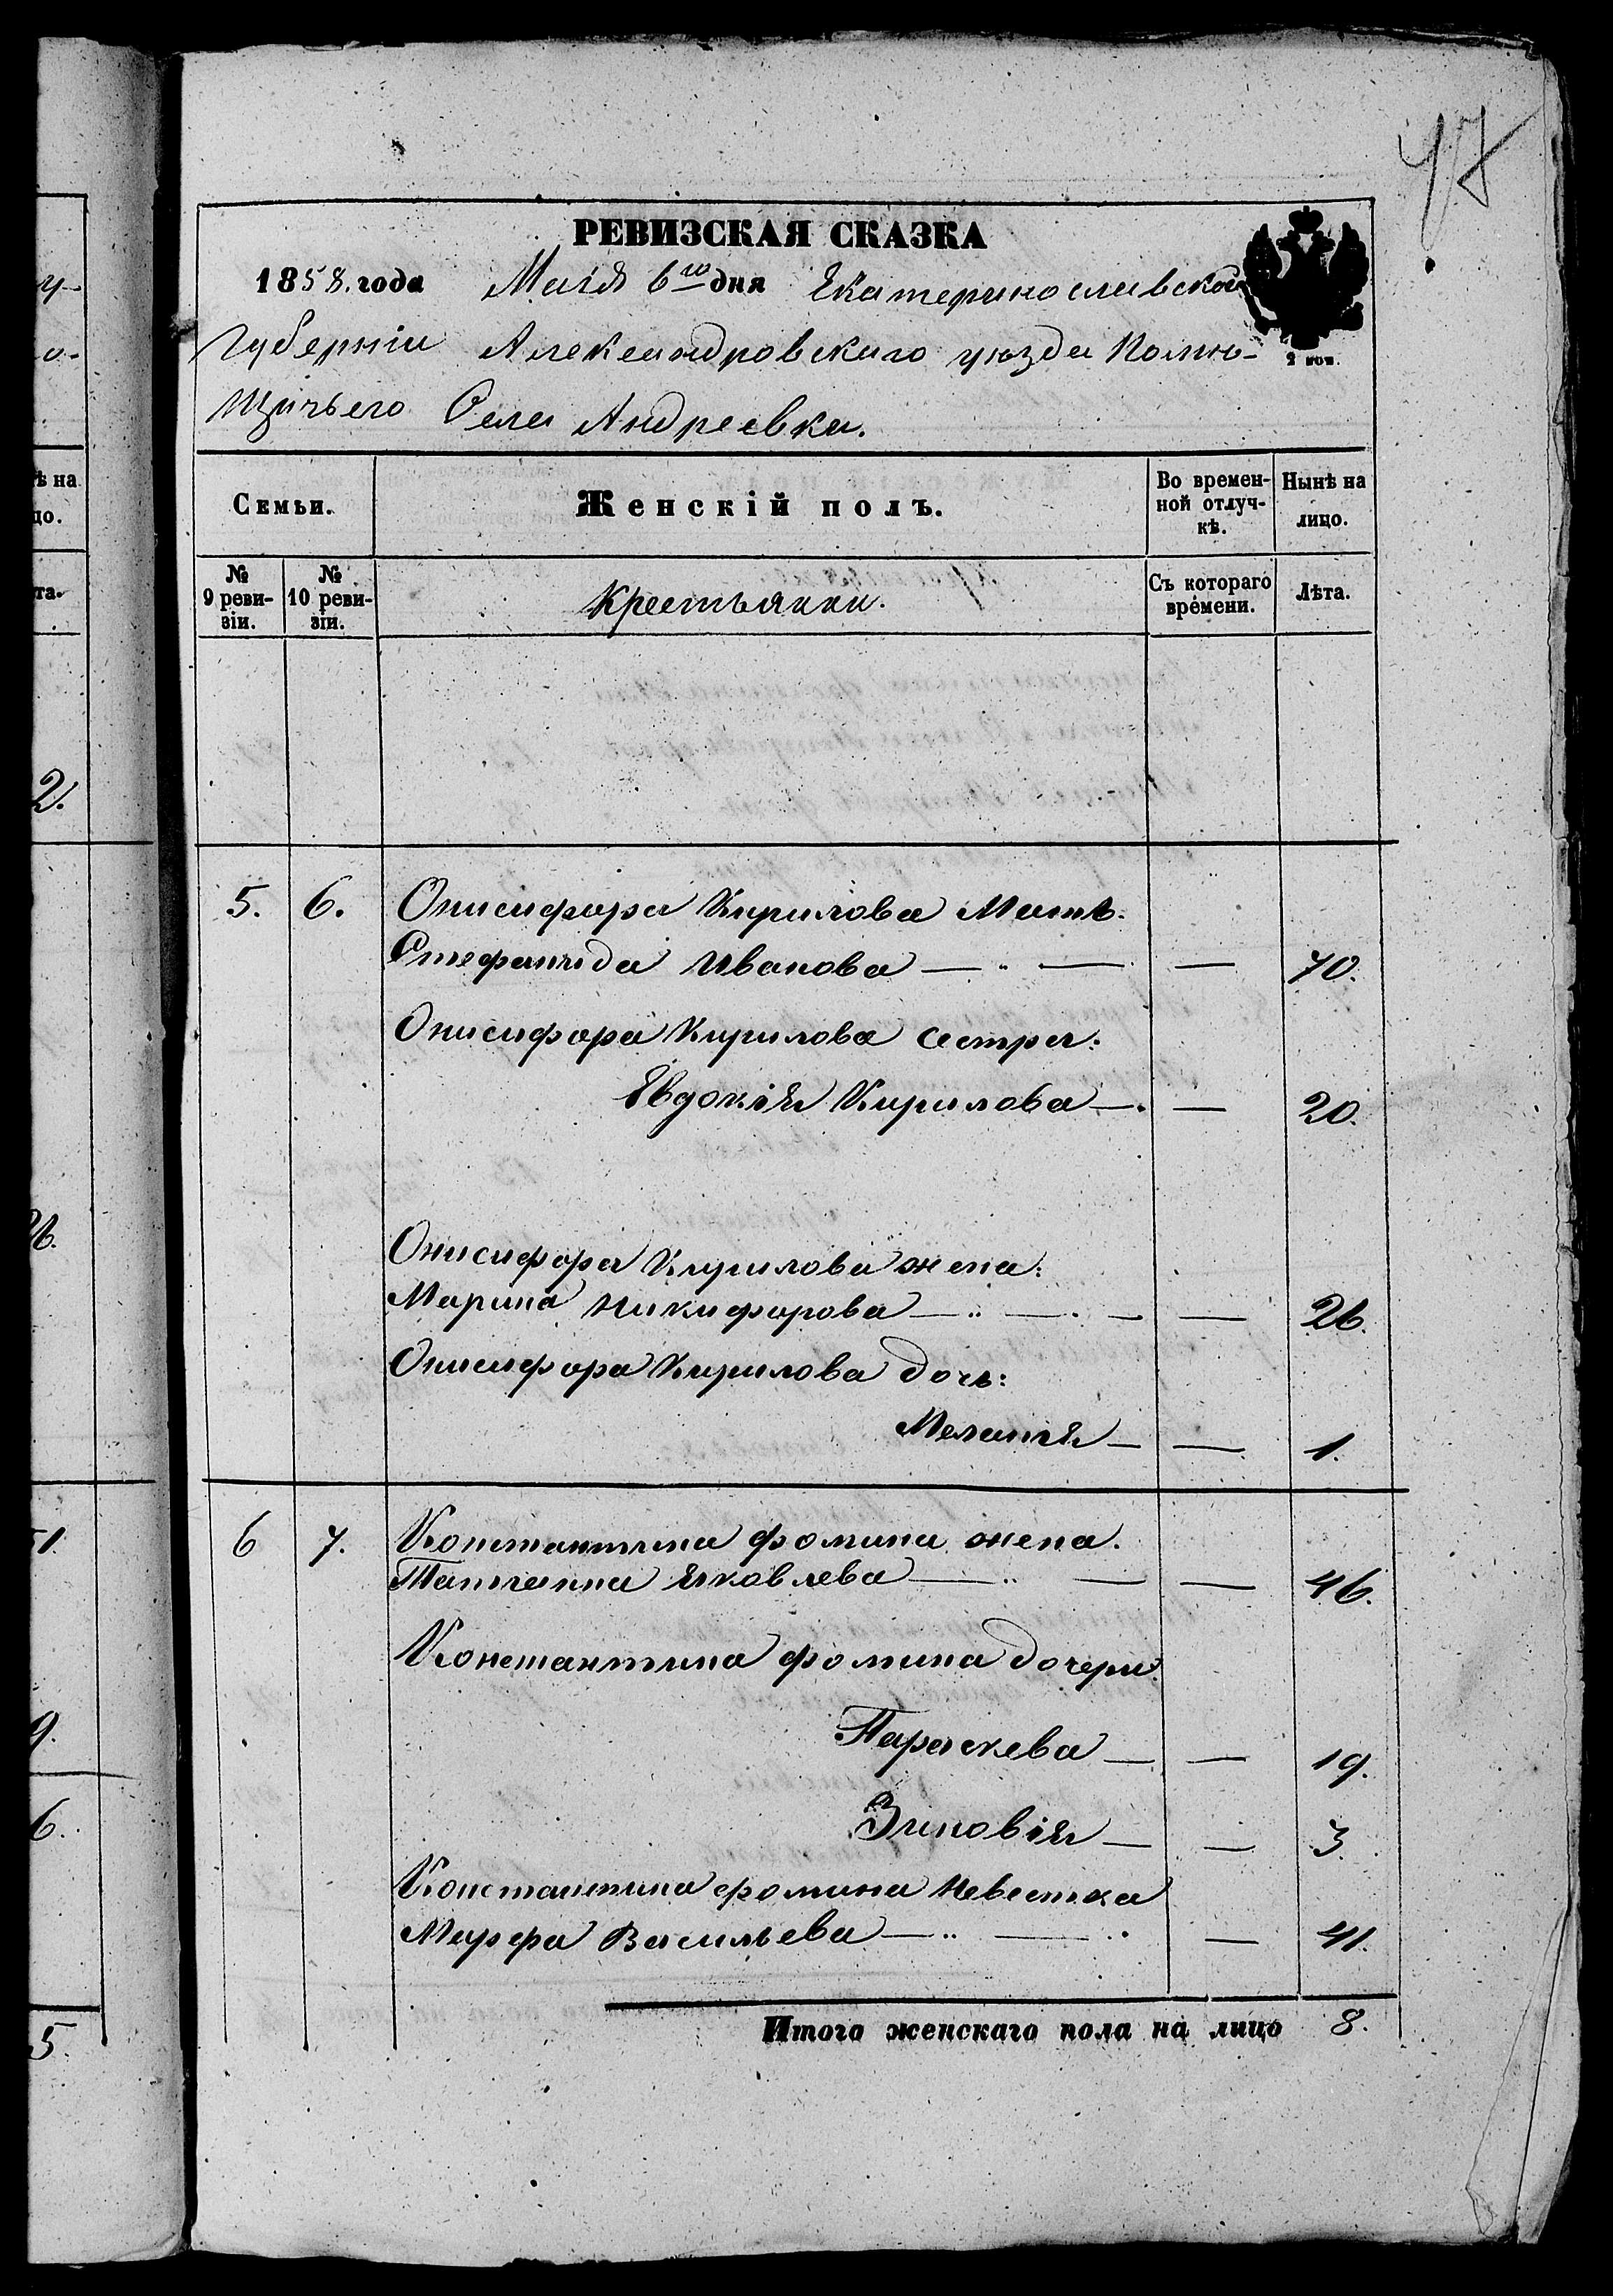 47
РЕВИЗСКАЯ СКАЗКА
1858. года Маія 6го дня Екатеринославской
Губерніи Александровскаго уѣзда Помѣ-
щичьего Села Андреевки.
2 коп.
Семьи.
Женскій полъ.
Во времен-
ной отлуч-
кѣ.
Нынѣ на
лицо.
№
9 реви-
зіи.
№
10 реви-
зіи.
Крестьянки.
Съ котораго
времени.
Лѣта.
5. 6. Онисифора Кирилова Мать:
Стефанида Иванова — — — 70.
Онисифора Кирилова сестра:
Евдокія Кирилова — — 20.
Онисифора Кирилова жена:
Марина Никифорова — — — — 26.
Онисифора Кирилова дочь:
Меланія — — 1.
6 7. Константина фомина жена.
Татіанна Яковлева — — — 46.
Константина фомина дочери:
Параскева — — 19.
Зиновія — — 3.
Константина фомина Невестка
Марфа Васильева — — — 41.
Итого женскаго пола на лицо 8.
у-
о-
ѣ на
цо.
та.
2.
26.
51.
9.
6.
5.